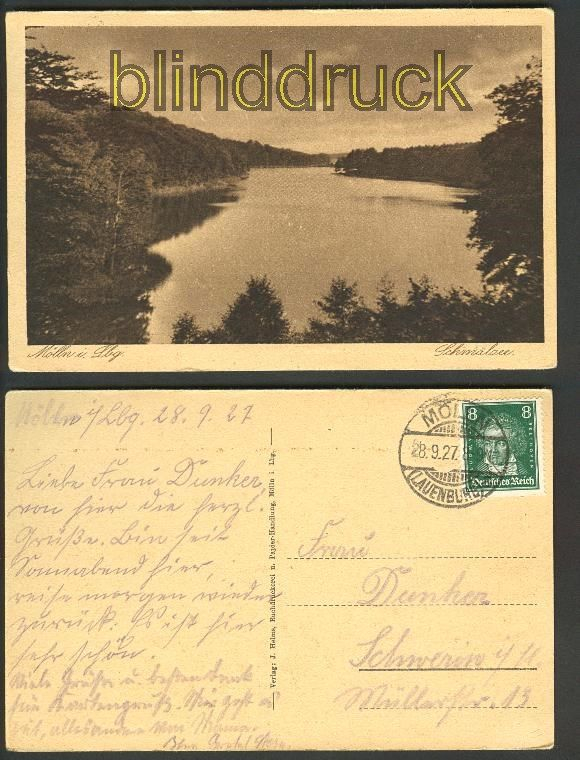 blinddruck
Mölln i. Lbg.
Schmalsee.
Mölln i/Lbg. 28. 9. 27
Liebe Frau Dunker,
von hier die herzl.
Grüße. Bin seit
Sonnabend hier,
reise morgen wieder
zurück. Es ist hier
sehr schön.
Viele Grüße u besten Dank
gut, alles andere von Mama.
Verlag: J. Helms, Buchdruckerei u. Papier-Handlung, Mölln i. Lbg.
MÖLLN
28.9.27.
(LAUENBURG)
8 8
Deutsches Reich
Frau
Dunker
Schwerin i/M
Müllerstr. 13